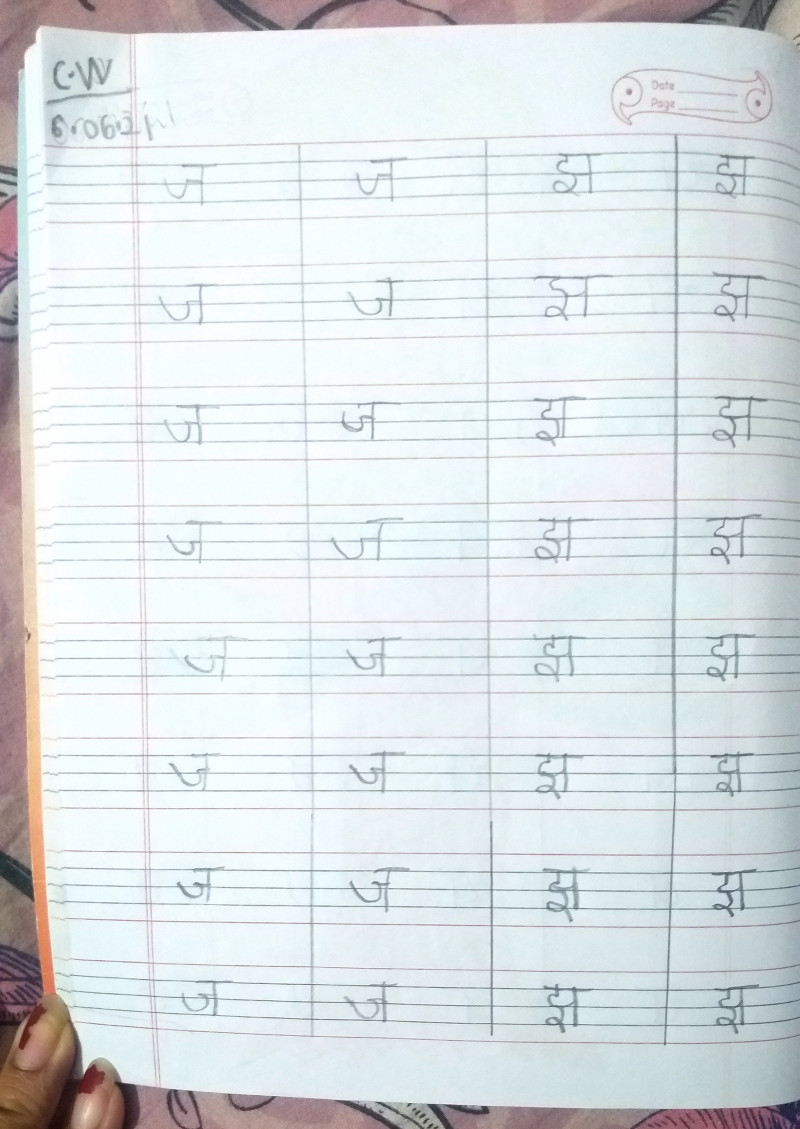 C.W
Date
Page
ज ज झ झ
ज ज झ झ
ज ज झ झ
ज ज झ झ
ज ज झ झ
ज ज झ झ
ज ज झ झ
ज ज झ झ